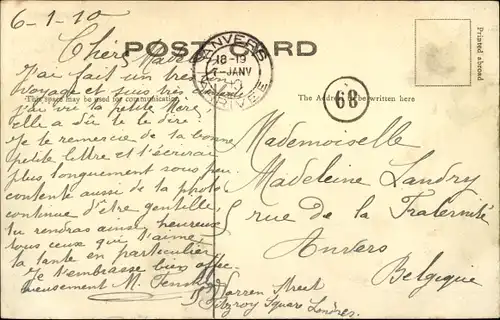 6-1-10
POST CARD
Chère Madeleine
J'ai fait un très bon
voyage et suis très contente
This space may be used for communication.
j'ai vu ta petite Mère
elle a dû te le dire.
Je te remercie de ta bonne
petite lettre et t'écrirai
plus longuement sous peu
contente aussi de ta photo
continue d'être gentille,
tu rendras ainsi heureux
tous ceux qui t'aime
ta tante en particulier
Je t'embrasse bien affec
tueusement M.
Warren Street
Fitzroy Square Londres.
ANVERS
18-19
7-JANV
10
ARRIVÉE
Printed abroad
The Address to be written here
68
Mademoiselle
Madeleine Landry
5 rue de la Fraternité
Anvers
Belgique